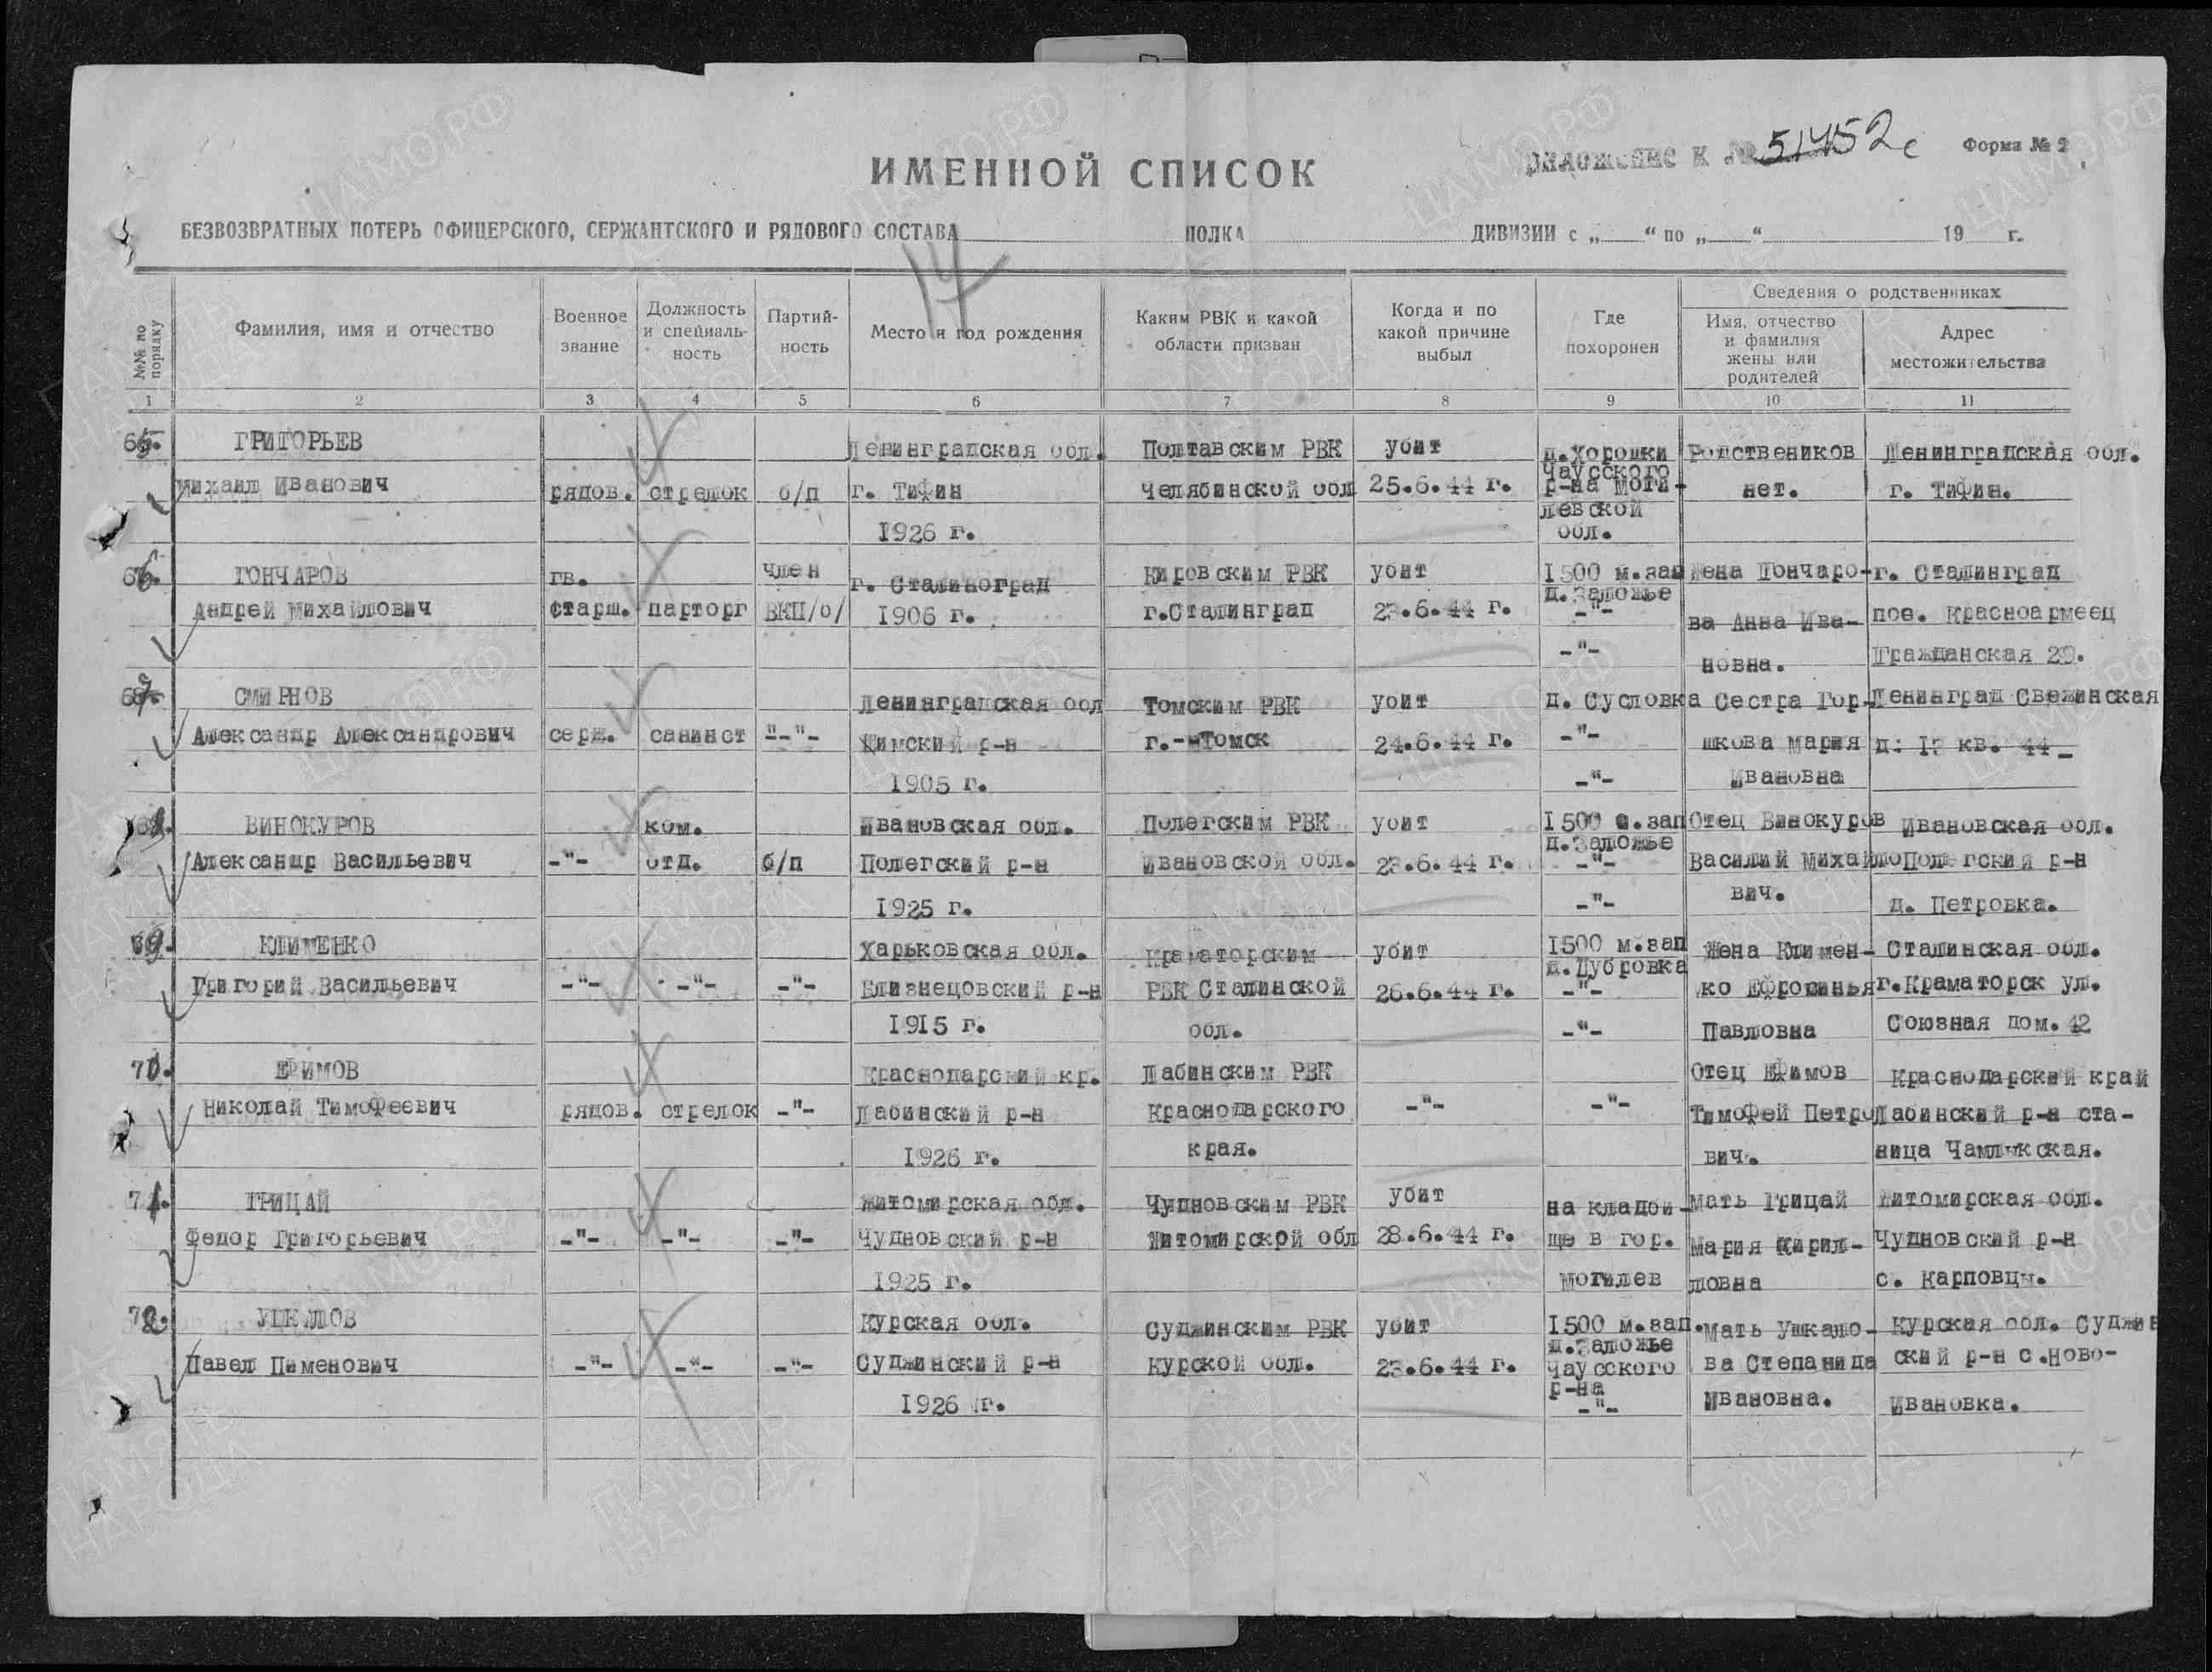 ИМЕННОЙ СПИСОК
риложение к № 51452с
Форма № 2
БЕЗВОЗВРАТНЫХ ПОТЕРЬ ОФИЦЕРСКОГО, СЕРЖАНТСКОГО И РЯДОВОГО СОСТАВА ПОЛКА ДИВИЗИИ с „ “ по „ “ 19 г.
14
№№ по порядку
Фамилия, имя и отчество
Военное
звание
Должность
и специаль-
ность
Партий-
ность
Место и год рождения
Каким РВК и какой
области призван
Когда и по
какой причине
выбыл
Где
похоронен
Сведения о родственниках
Имя, отчество
и фамилия
жены или
родителей
Адрес
местожительства
1 2 3 4 5 6 7 8 9 10 11
65. ГРИГОРЬЕВ
Михаил Иванович
рядов.
стрелок
б/п
Ленинградская обл.
г. Тифин
1926 г.
Полтавским РВК
Челябинской обл
убит
25.6.44 г.
д.Хорошки
Чаусского
р-на Моги-
левской
обл.
Родствеников
нет.
Ленинградская обл.
г. Тифин.
66. ГОНЧАРОВ
Андрей Михайлович
гв.
старш.
парторг
член
ВКП/б/
г. Сталиноград
1906 г.
Кировским РВК
г.Сталинград
убит
23.6.44 г.
1500 м.зап
д.Заложье
-"-
-"-
Жена Гончаро-
ва Анна Ива-
новна.
г. Сталинград
пос. Красноармеец
Гражданская 29.
67. СМИРНОВ
Александр Александрович
серж.
санинст
"-"-
Ленинградская обл
1905 г.
Томским РВК
г.-Томск
убит
24.6.44 г.
д. Сусловка
-"-
-"-
Сестра Гор-
шкова Мария
Ивановна
Ленинград Свежинская
кв. 44
68. ВИНОКУРОВ
Александр Васильевич
-"-
ком.
отд.
б/п
Ивановская обл.
Полегский р-н
1925 г.
Полегским РВК
Ивановской обл.
убит
23.6.44 г.
1500 м.зап
д.Заложье
-"-
-"-
Отец Винокуров
Василий Михайло
вич.
Ивановская обл.
Полегский р-н
д. Петровка.
69. КЛИМЕНКО
Григорий Васильевич
-"-
-"-
-"-
Харьковская обл.
Близнецовский р-н
1915 г.
Краматорским
РВК Сталинской
обл.
убит
26.6.44 г.
1500 м.зап
д.Дубровка
-"-
-"-
Жена Климен-
ко Ефросинья
Павловна
Сталинская обл.
г.Краматорск ул.
Союзная дом.42
70. ЕФИМОВ
Николай Тимофеевич
рядов.
стрелок
-"-
Краснодарский кр.
Лабинский р-н
1926 г.
Лабинским РВК
Краснодарского
края.
-"-
-"-
Отец Ефимов
Тимофей Петро
вич.
Краснодарский край
Лабинский р-н ста-
ница Чамлыкская.
71. ГРИЦАЙ
Федор Григорьевич
-"-
-"-
-"-
Житомирская обл.
Чудновский р-н
1925 г.
Чудновским РВК
Житомирской обл
убит
28.6.44 г.
на кладби-
ще в гор.
Могилев
Мать Грицай
Мария Кирил-
ловна
Житомирская обл.
Чудновский р-н
с. Карповцы.
72. УШКАЛОВ
Павел Пименович
-"-
-"-
-"-
Курская обл.
Суджинский р-н
1926 г.
Суджинским РВК
Курской обл.
убит
23.6.44 г.
1500 м.зап.
д.Заложье
Чаусского
р-на
-"-
Мать Ушкало-
ва Степанида
Ивановна.
Курская обл. Суджин
ский р-н с.Ново-
Ивановка.